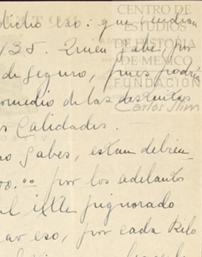 dicho eso: que
135. Quien sabe, por
de seguro, pues podría
promedio de las distintas
s Calidades.
no sabes, estan debien
00.°° por los adelantos
al ixtle pignorado
ar eso, por cada Kilo
CENTRO DE
ESTUDIOS
DE HISTORIA
DE MEXICO
FUNDACIÓN
Carlos Slim